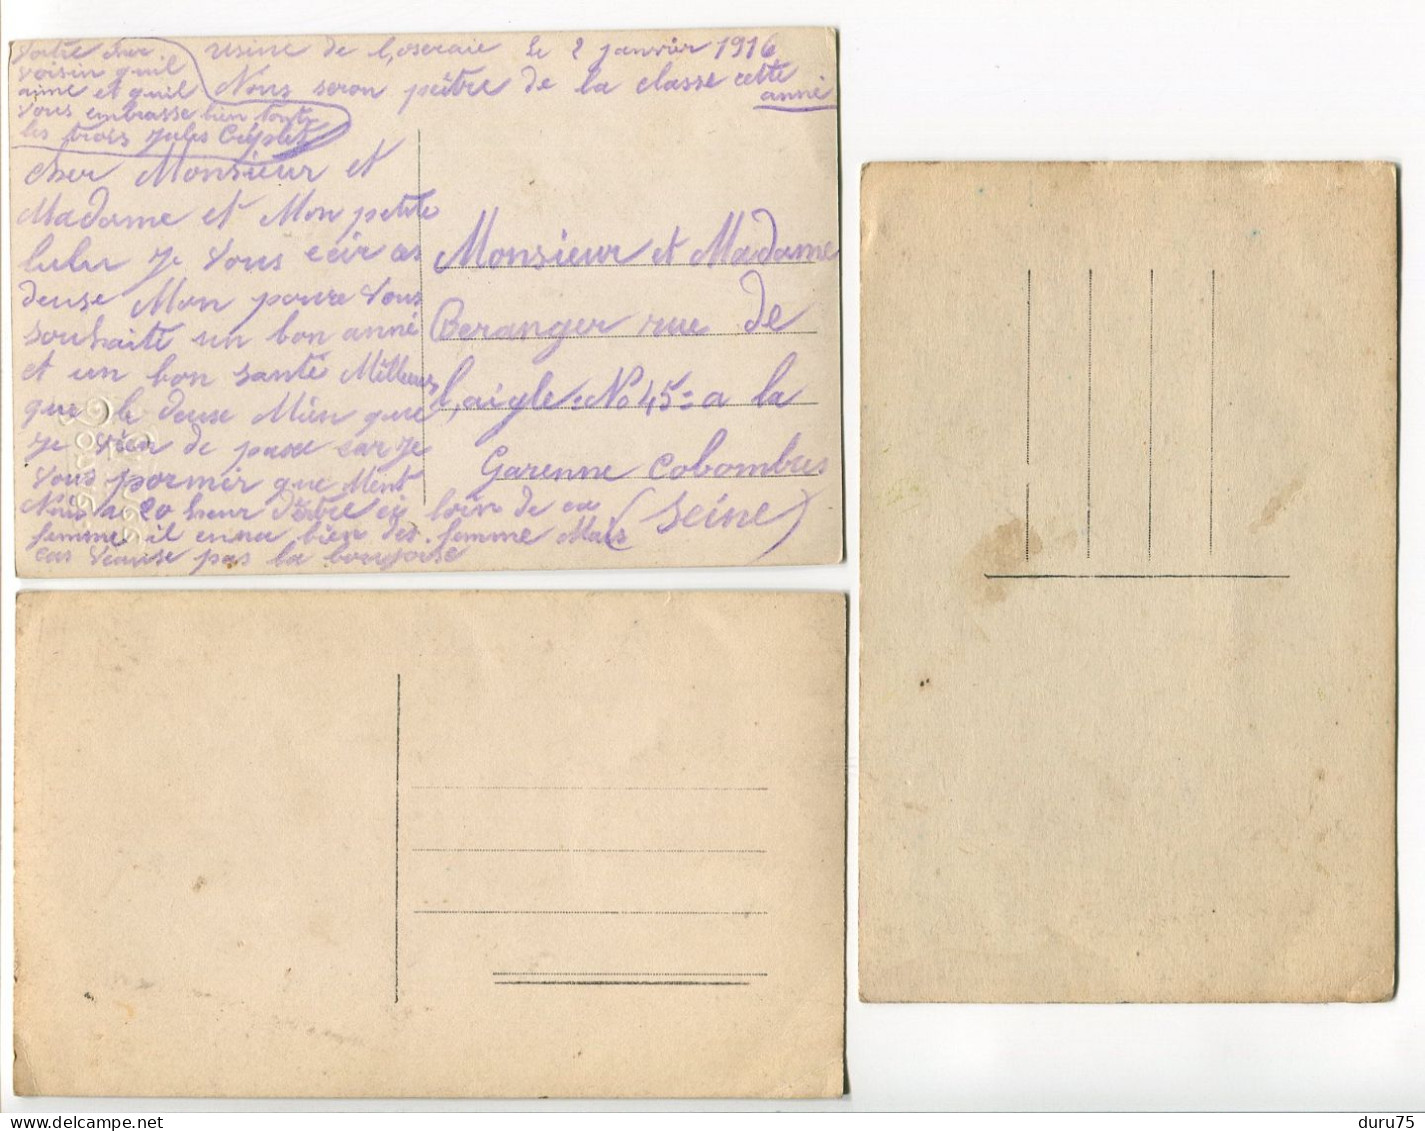 usine de l,oseraie le 2 janvier 1916
Nous seron peitre de la classe cette
anné
Votre cher
voisin quil
aime et quil
vous embrasse bien toute
les trois Jules Créplet
cher Monsieur et
Madame et Mon petite
lulu Je vous ecir as
deuse Mon poure vous
souhaite un bon anné
et un bon santé Mêlleur
que le deuse Mien que
Je vien de pase car Je
vous pormir que Ment
Nuis a 20 heur d'être si loin de ca
femme il en na bien des femme Mais
cas veause pas la bourjoise
Monsieur et Madame
Beranger rue de
l,aigle. No 45 = a la
Garenne Colombres
(Seine)
duru75